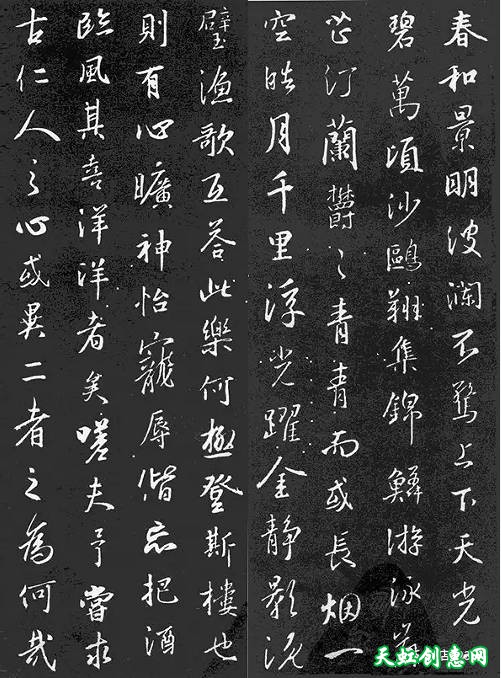 春和景明波瀾不驚上下天光
碧萬頃沙鷗翔集錦鱗游泳岸
芷汀蘭鬱々青青而或長烟一
空皓月千里浮光躍金靜影沉
璧漁歌互荅此樂何極登斯樓也
則有心曠神怡寵辱偕忘把酒
臨風其喜洋洋者矣嗟夫予嘗求
古仁人之心或異二者之為何哉
天虹创惠网